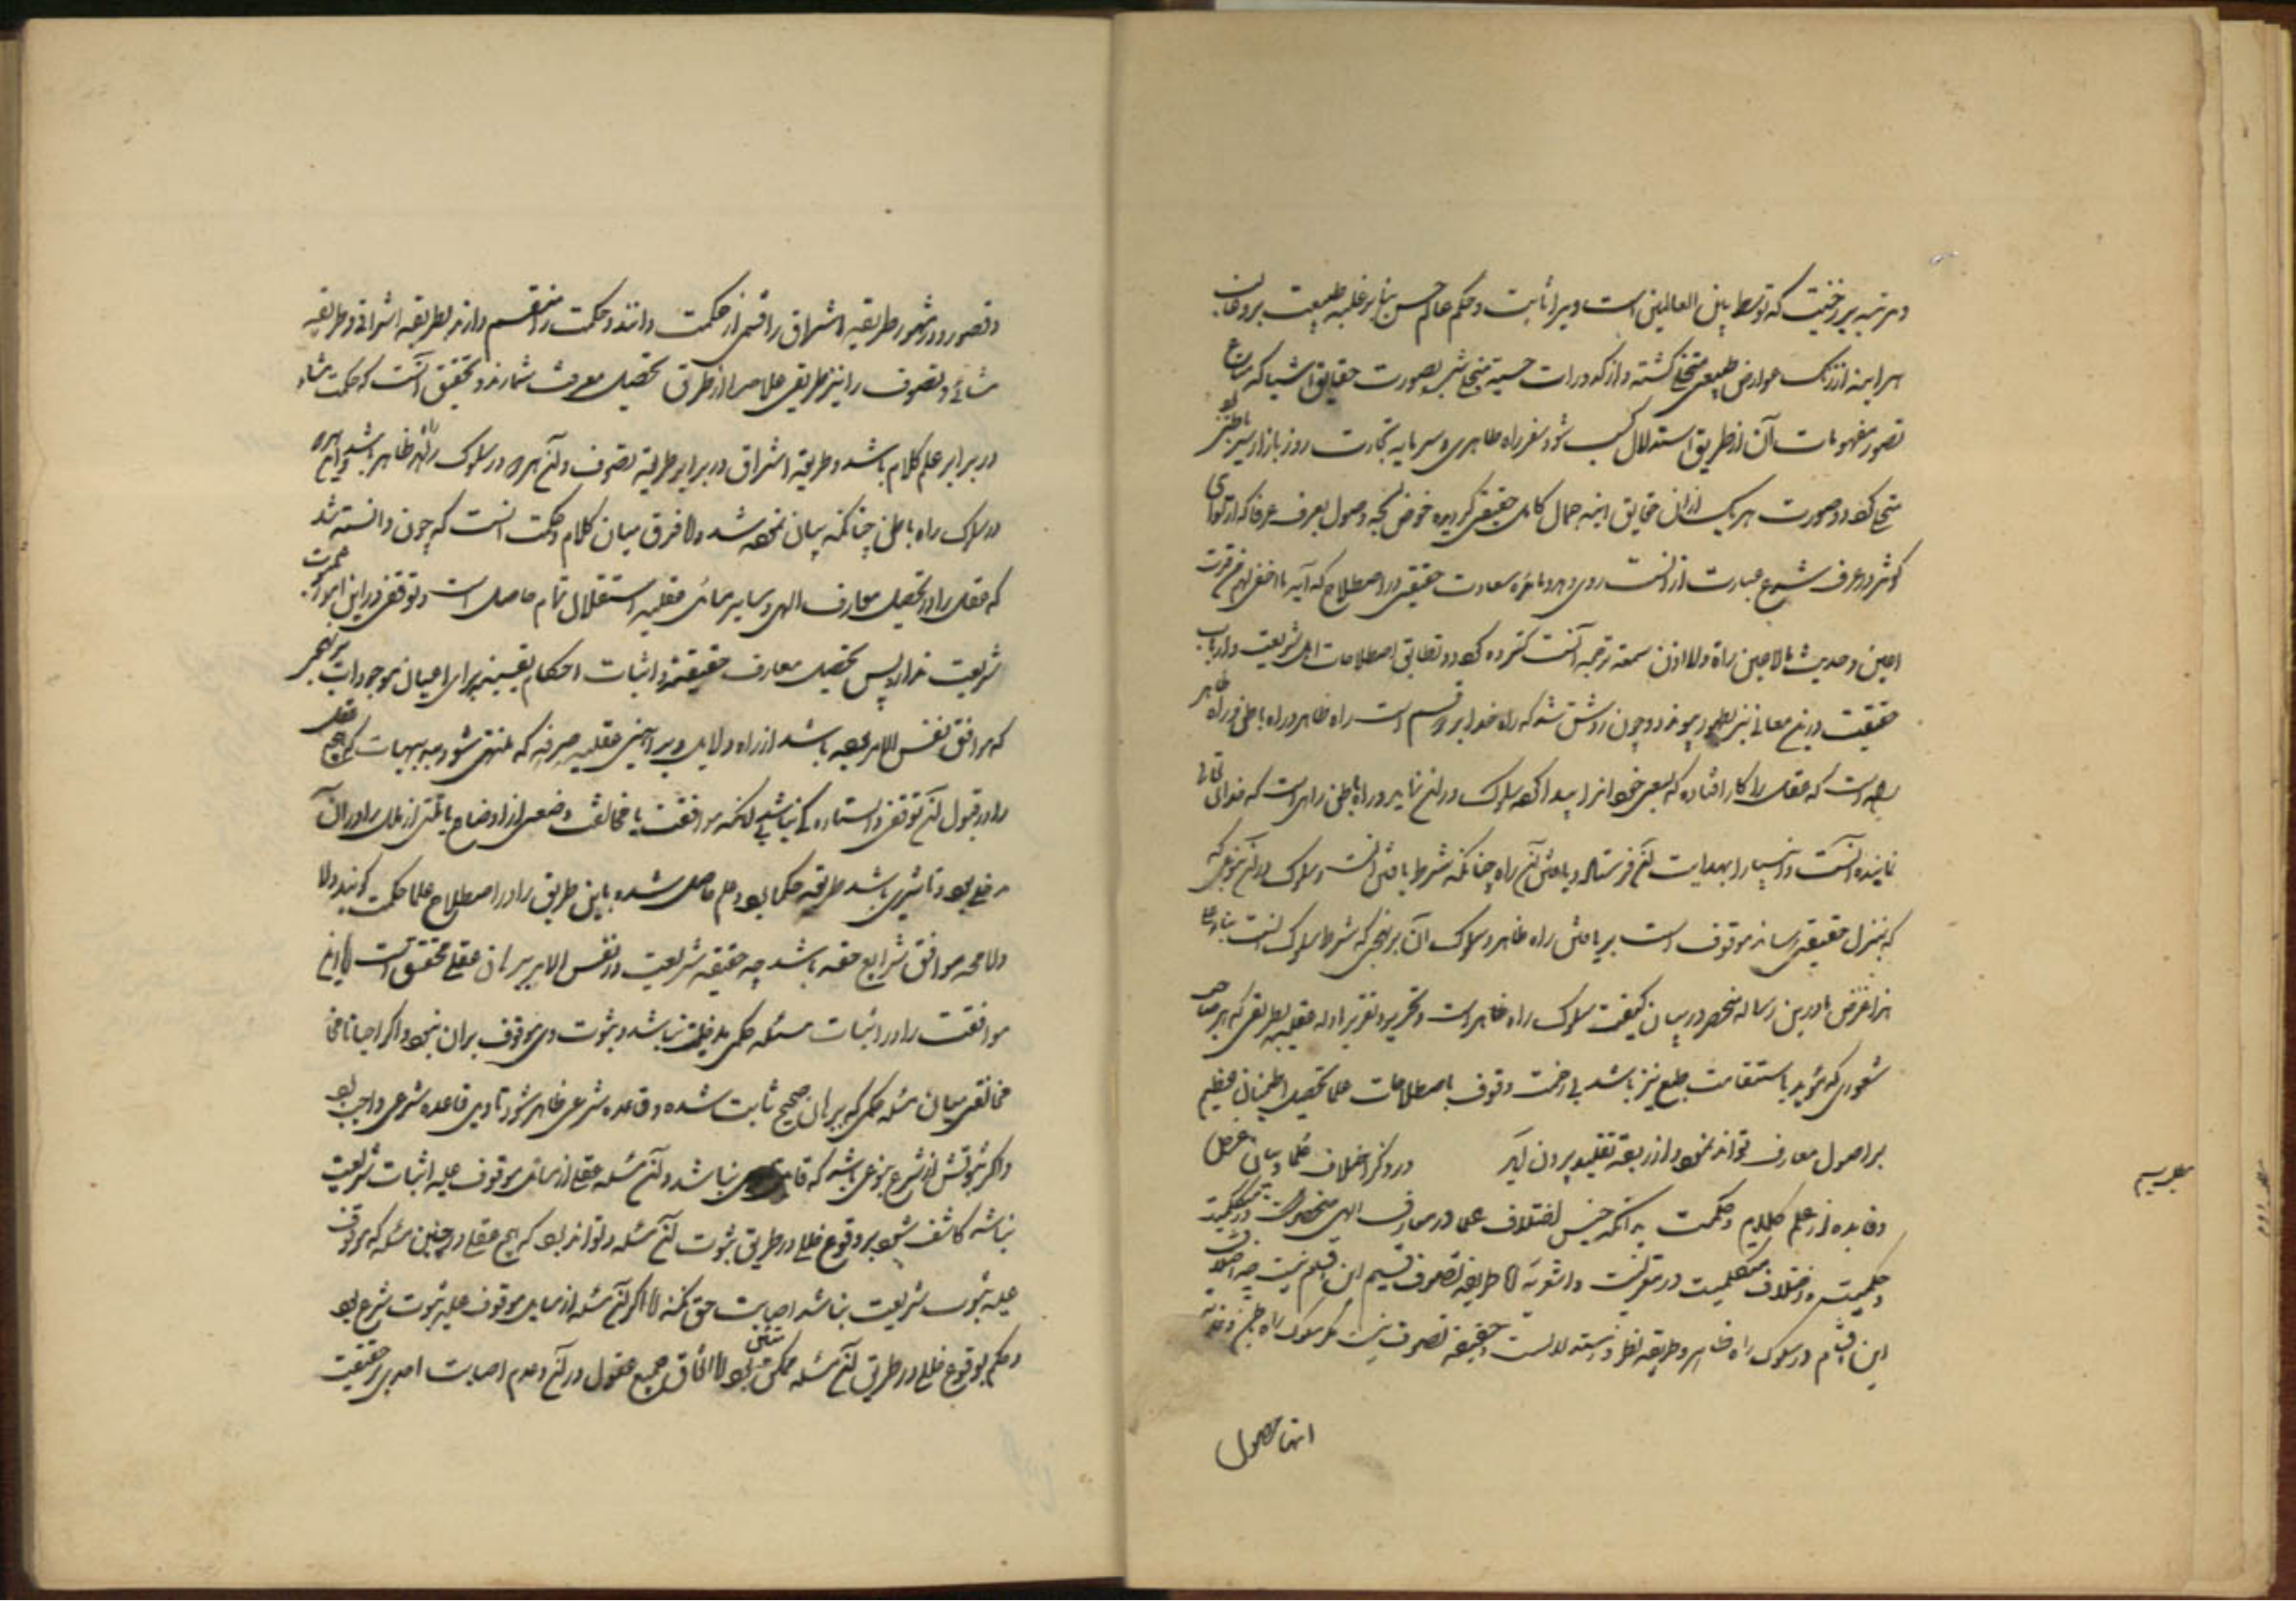 و مرتبه برزخیت که توسط بین العالمین است ویرا ثابت و حکم عالم حس بنا بر غلبه طبیعت بر روحانیت
هر اینه از زنک عوارض طبیعی متخلی کشته و از کدورات حسیه متخلی شده بصورت حقایق اشیا که
تصور مفهومات آن از طریق استدلال کسب شود سفر راه ظاهری و سرمایه تجارت روز بازار سیر باطنی
متجلی کردد و صورت هر یک ازان حقایق اینه جمال کامل حقیقی کردیده خوض لجه وصول بعرف عرفا که از
کوثر در عرف شرع عبارت از آنست روی دهد و مائده سعادت حقیقی در اصطلاح که آیه ما اخفی لهم من قرة
اعین و حدیث ما لا عین رأت و لا اذن سمعت ترجمه آنست کسترده کردد و تطابق اصطلاحات اهل شریعت و ارباب
حقیقت درین معانی نیز بظهور پیوندد و چون روشن شد که راه خدا بر دو قسم است راه ظاهر و راه باطن و راه ظاهر
راهی است که عقل را کار افتاده که بسعی خود انرا پیدا کرده سلوک دران نماید و راه باطن راهی است که خدای تعالی
نماینده آنست و انبیا را بهدایت آن فرستاده و یافتن آن راه چنانکه شرط یافتن است و سلوک در آن بنوعی که
که بمنزل حقیقی رساند موقوف است بر یافتن راه ظاهر و سلوک آن بر نهجی که شرط سلوک انست بناء علی
هذا غرض ما درین رساله منحصر در بیان کیفیت سلوک راه ظاهر است و تحریر و تقریر ادله عقلیه بطریقی که هر صاحب
شعوری که مؤید باستقامت طبع نیز باشد بی زحمت وقوف باصطلاحات علما تحصیل اطمینانی عظیم
بر اصول معارف تواند نمود و از ربقه تقلید بیرون آید در ذکر اختلاف علما و بیان غرض
و فایده از علم کلام و حکمت بدانکه جنس اختلاف علما در معارف الهی منحصر است در متکلمیت
و حکمیت و اختلاف متکلمیت در معتزلیت و اشعریه اما طریقه تصوف قسیم این اقسام نیست چه اختلاف
این اقسام در سلوک راه ظاهر و طریقه نظر و استدلالست و حقیقت تصوف نیست مکر سلوک راه باطن و غایت
انها حصول
و تصوف و در مشهور طریقه اشراق را قسمی از حکمت دانند و حکمت را منقسم دارند بطریقه اشراق و طریقه
مشائی و تصوف را نیز طریقی علاحده از طرق تحصیل معرفت شمارند و تحقیق آنست که حکمت مشاء
در برابر علم کلام باشد و طریقه اشراق در برابر طریقه تصوف و آن هردو در سلوک راه ظاهر باشد و این هردو
در سلوک راه باطن چنانکه بیان نموده شد و اما فرق میان کلام و حکمت انست که چون دانسته شد
که عقل را در تحصیل معارف الهی و سایر مسائل عقلیه استقلال تمام حاصل است و توقفی در این امور بثبوت
شریعت ندارد پس تحصیل معارف حقیقیه و اثبات احکام یقینیه برای اعیان موجودات بر نحوی
که موافق نفس الامر بوده باشد از راه دلایل و براهین عقلیه صرفه که منتهی شود ببدیهیات که هیچ عقل
را در قبول آن توقفی و ایستادگی نباشد بی آنکه موافقت یا مخالفت وضعی از اوضاع یا ملتی از ملل را در آن
مدخلی بود و تاثیری باشد طریقه حکما بود و علم حاصل شده باین طریق را در اصطلاح علما حکمت کویند و لا
و لا محاله موافق شرایع حقه باشد چه حقیقت شریعت در نفس الامر ببرهان عقلی محقق است اما این
موافقت را در اثبات مسئله حکمی مدخلیتی نباشد و ثبوت وی موقوف بران نبود و اکر احیانا
مخالفتی میان مسئله حکمی که ببرهان صحیح ثابت شده و قاعده شرعی ظاهر شود تاویل قاعده شرعی واجب بود
و اکر ثبوتش از شرع بنوعی باشد که قابل تاویل نباشد و آن مسئله عقلی از مسائل موقوف علیه اثبات شریعت
نباشد کاشف شود بر وقوع خللی در طریق ثبوت آن مسئله و تواند بود که هیچ عقلی در چنین مسئله که موقوف
علیه ثبوت شریعت نباشد اصابت حق نکند اما اکر آن مسئله از مسایل موقوف علیه ثبوت شرع بود
و حکم بوقوع خللی در طریق آن مسئله ممکن نبود و الا اتفاق جمیع عقول در آن و عدم اصابت احدی بحقیقت